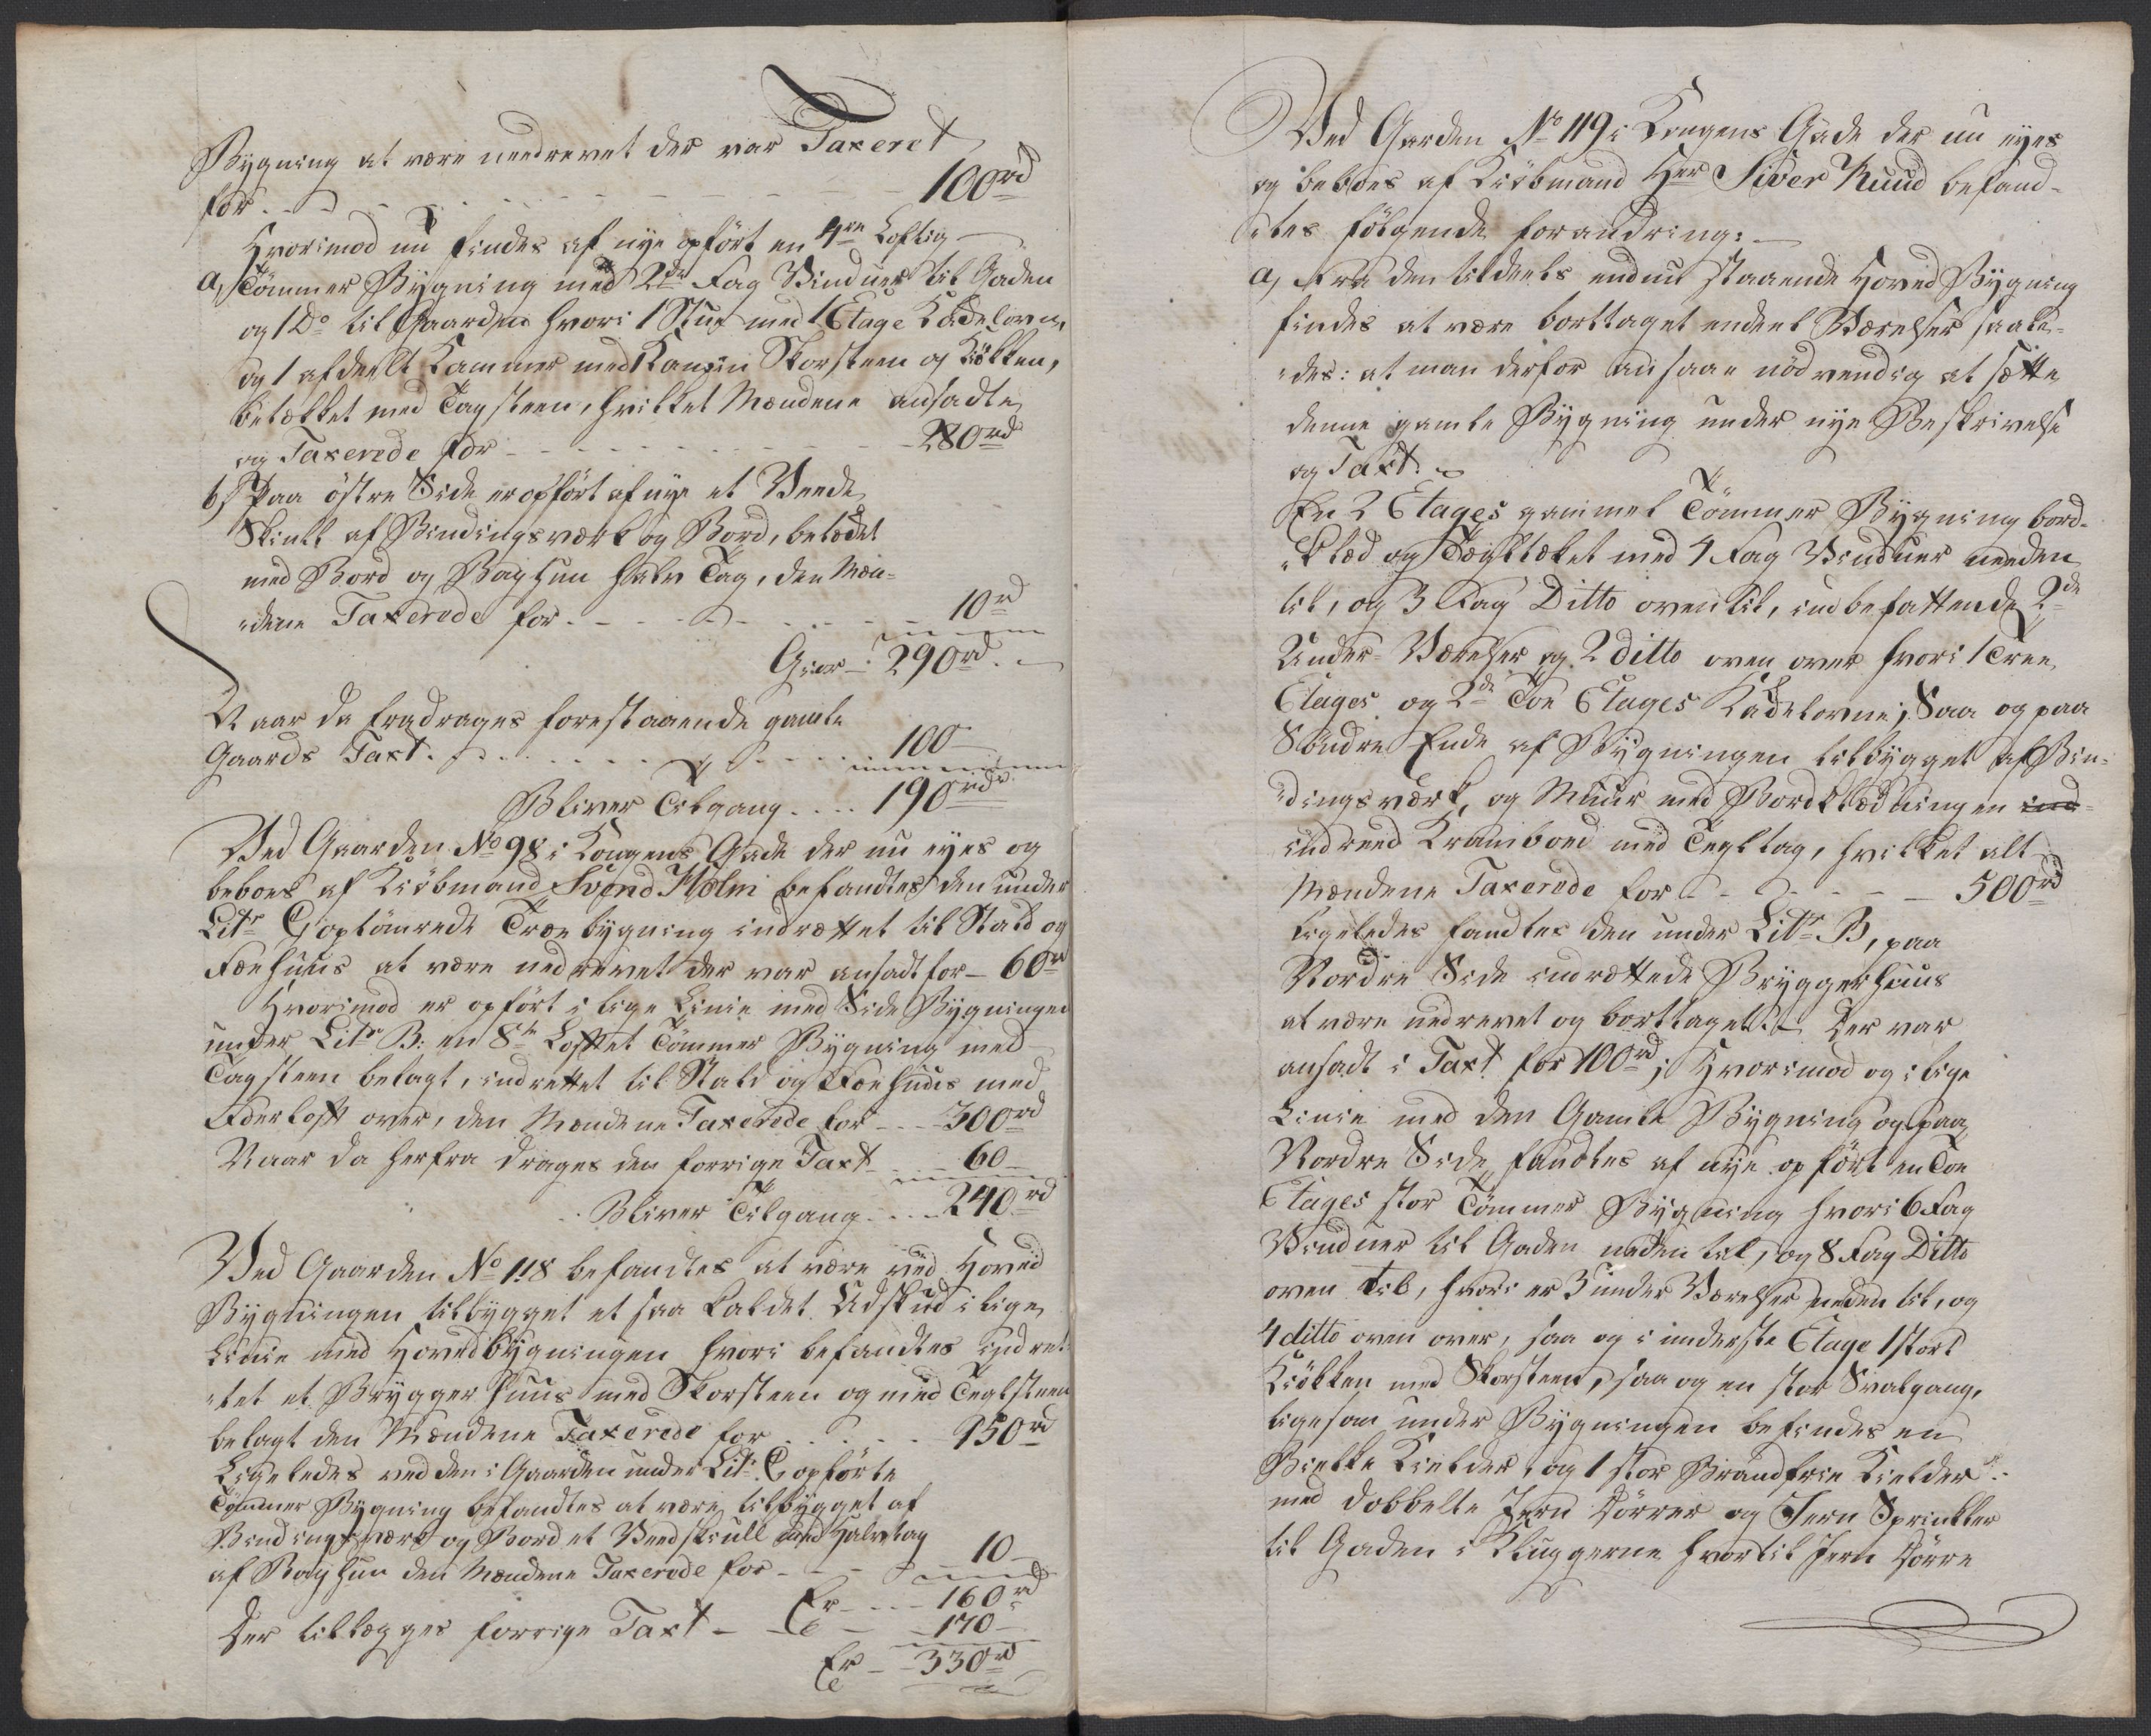 Bygning at være needrevet der var Taxeret
for - - - - 100rd
Hvorimod nu findes af nye opført en 4re Loftig
a, Tömmer Bygning med 2de Fag Vinduer til Gaden
og 1 Do til Gaarden hvori 1 Stue med 1 Etage Kakelovn,
og 1 afdeelt Kammer med Kamin Skorsteen og Kiökken,
betækket med Tagsteen, hvilket Mændene ansadte
og Taxerede for - - - - 280rd
b, Paa östre Side er opfört af nye et Veede
Skiull af Bindingsværk og Bord, beklædet
med Bord og Baghun halv Tag, den Mæn-
dene Taxerede for - - - - 10rd
Giør - 290rd.
Naar da fradrages forestaaende gamle
Gaards Taxt. - - - - 100
Bliver Tilgang .... 190rdr
Ved Gaarden No 98 i Kongens Gade der nu eyes og
beboes af Kiöbmand Svend Holm befandtes den under
Litr C, optömrede Træebygning indrættet til Stald og
Fæehuus at være nedrevet der var ansadt for - 60rd
Hvorimod er opfört i lige Linie med Side Bygningen
under Litr B: en 8te Loftet Tömmer Bygning med
Tagsteen belagt, indrettet til Stald og Fæehuus med
Foderloft over, den Mændene Taxerede for - - - 300rd
Naar da herfra drages den forrige Taxt - - 60 -
Bliver Tilgang .... 240rd
Ved Gaarden No 118 befandtes at være ved Hoved
Bygningen tilbygget et saa kaldet Udskud i lige
Linie med Hovedbygningen hvori befandtes indret-
tet et Brygger huus med Skorsteen og med Teglsteen
belagt den Mændene Taxerede for - - - - 150rd
Ligeledes ved den i Gaarden under Litr C, opförte
Tömmer Bygning befandtes at være tilbygget af
Bindingsværk og Bord et Veedskiull med Halvtag
af Baghun den Mændene Taxerede for - - - 10 -
Er - - - 160rd
Der tillægges forrige Taxt - - 170 -
Er - - 330rd
Ved Garden No 119 i Kongens Gade der nu eyes
og beboes af Kiöbmand Herr Siver Ruud befand-
tes fölgende forandring:
a, Fra den tildeels endnu staaende Hoved Bygning
findes at være borttaget endeel Værelser saale-
des: at man derfor ansaae nödvendig at sætte
denne gamle Bygning under nye Beskrivelse
og Taxt.
En 2 Etages gammel Tömmer Bygning bord-
klæd og Tegltæket med 4 Fag Vinduer needen
til, og 3 Fag Ditto oventil, indbefattende 2de
Under-Værelser og 2 ditto oven over hvori 1 Tree
Etages og 2de Toe Etages Kakelovne; Saa og paa
Söndre Ende af Bygningen tilbygget af Bin-
dingsværk, og Muur med Bordklædningen
indreed Kramboed med Tegltag, hvilket alt
Mændene Taxerede for - - - - 500rd
Ligeledes fandtes den under Litr B, paa
Nordre Side indrættede Bryggerhuus
at være nedrevet og borttaget. Der var
ansadt i Taxt for 100rd; Hvorimod og i lige
Linie med den Gamle Bygning og paa
Nordre Side fandtes af nye opfört en Toe
Etages stor Tömmer Bygning hvori 6 Fag
Vinduer til Gaden neden til, og 8 Fag Ditto
oven til, hvori er 3 under Værelser neden til, og
4 ditto oven over, saa og i underste Etage 1 stort
Kiökken med Skorsteen, saa og en stor Svalgang,
ligesom under Bygningen befindes en
Bielke Kielder, og 1 stor Brandfrie Kielder
med dobbelte Jern Dörrer og Jern Sprinkler
til Gaden i Gluggerne hvortil Jern Dörre